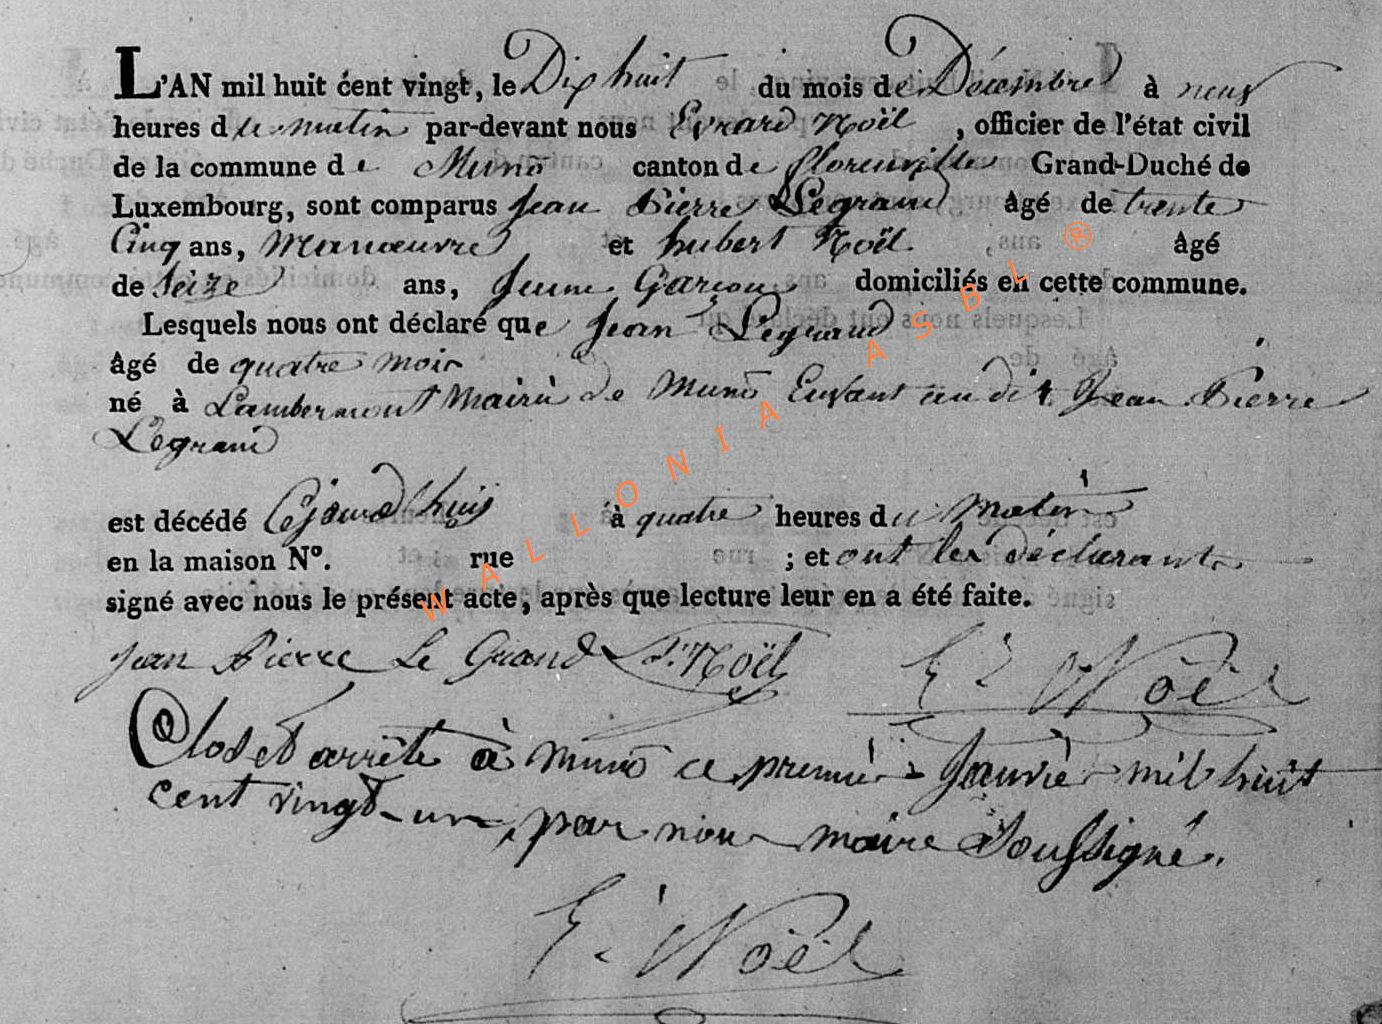 L'AN mil huit cent vingt, le Dix huit du mois de Décembre à neuf
heures du matin par-devant nous Evrard Noël , officier de l'état civil
de la commune de Muno canton de florenville Grand-Duché de
Luxembourg, sont comparus Jean Pierre Legrand âgé de trente
Cinq ans, Manœuvre et hubert Noël âgé
de Seize ans, Jeune Garçon domiciliés en cette commune.
Lesquels nous ont déclaré que Jean Legrand
âgé de quatre mois
né à Lambermont Mairie de Muno Enfant du dit Jean Pierre
Legrand
est décédé Cejourd'huis à quatre heures du Matin
en la maison N°. rue ; et ont les déclarants
signé avec nous le présent acte, après que lecture leur en a été faite.
Jean Pierre Le Grand h. Noël E. Noël
Clos et arrêté à muno ce premier Janvier mil huit
cent vingt-un, par nous maire Soussigné.
E. Noël
WALLONIA ASBL ®